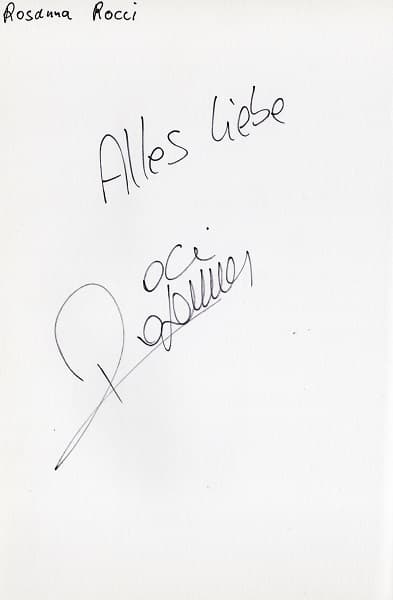 Rosanna Rocci
Alles Liebe
Rosanna
occi